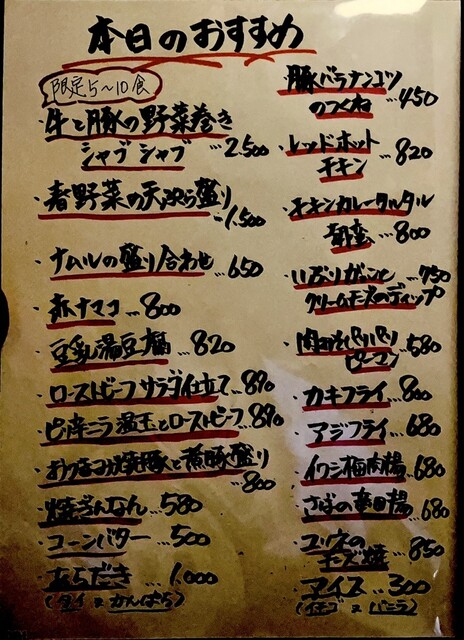 本日のおすすめ
限定5〜10食
・牛と豚の野菜巻き
シャブシャブ …2,500
・春野菜の天ぷら盛り
…1,500
・ナムルの盛り合わせ …650
・赤ナマコ …800
・豆乳湯豆腐 …820
・ローストビーフサラダ仕立て …890
・ピリ辛ニラ温玉とローストビーフ …890
焼豚と煮豚盛り
…800
・焼ぎんなん …580
・コーンバター …500
・あらだき …1,000
(タイ or かんぱち)
・豚バラナンコツ
のつくね …450
・レッドホット
チキン …820
・チキンカレータルタル
南蛮 …800
・いぶりがっこと …750
クリームチーズのディップ
・肉みそパリパリ
ピーマン …580
・カキフライ …800
・アジフライ …680
・イワシ梅肉揚 …680
・さばの竜田揚 …680
チーズ焼 …850
・アイス …300
(イチゴ or バニラ)